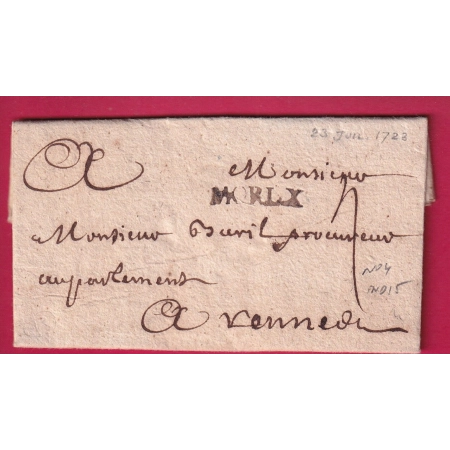 23 Juil. 1728
A Monsieur
MORLX
Monsieur Baril procureur
au parlement
N04
IND15
A rennes